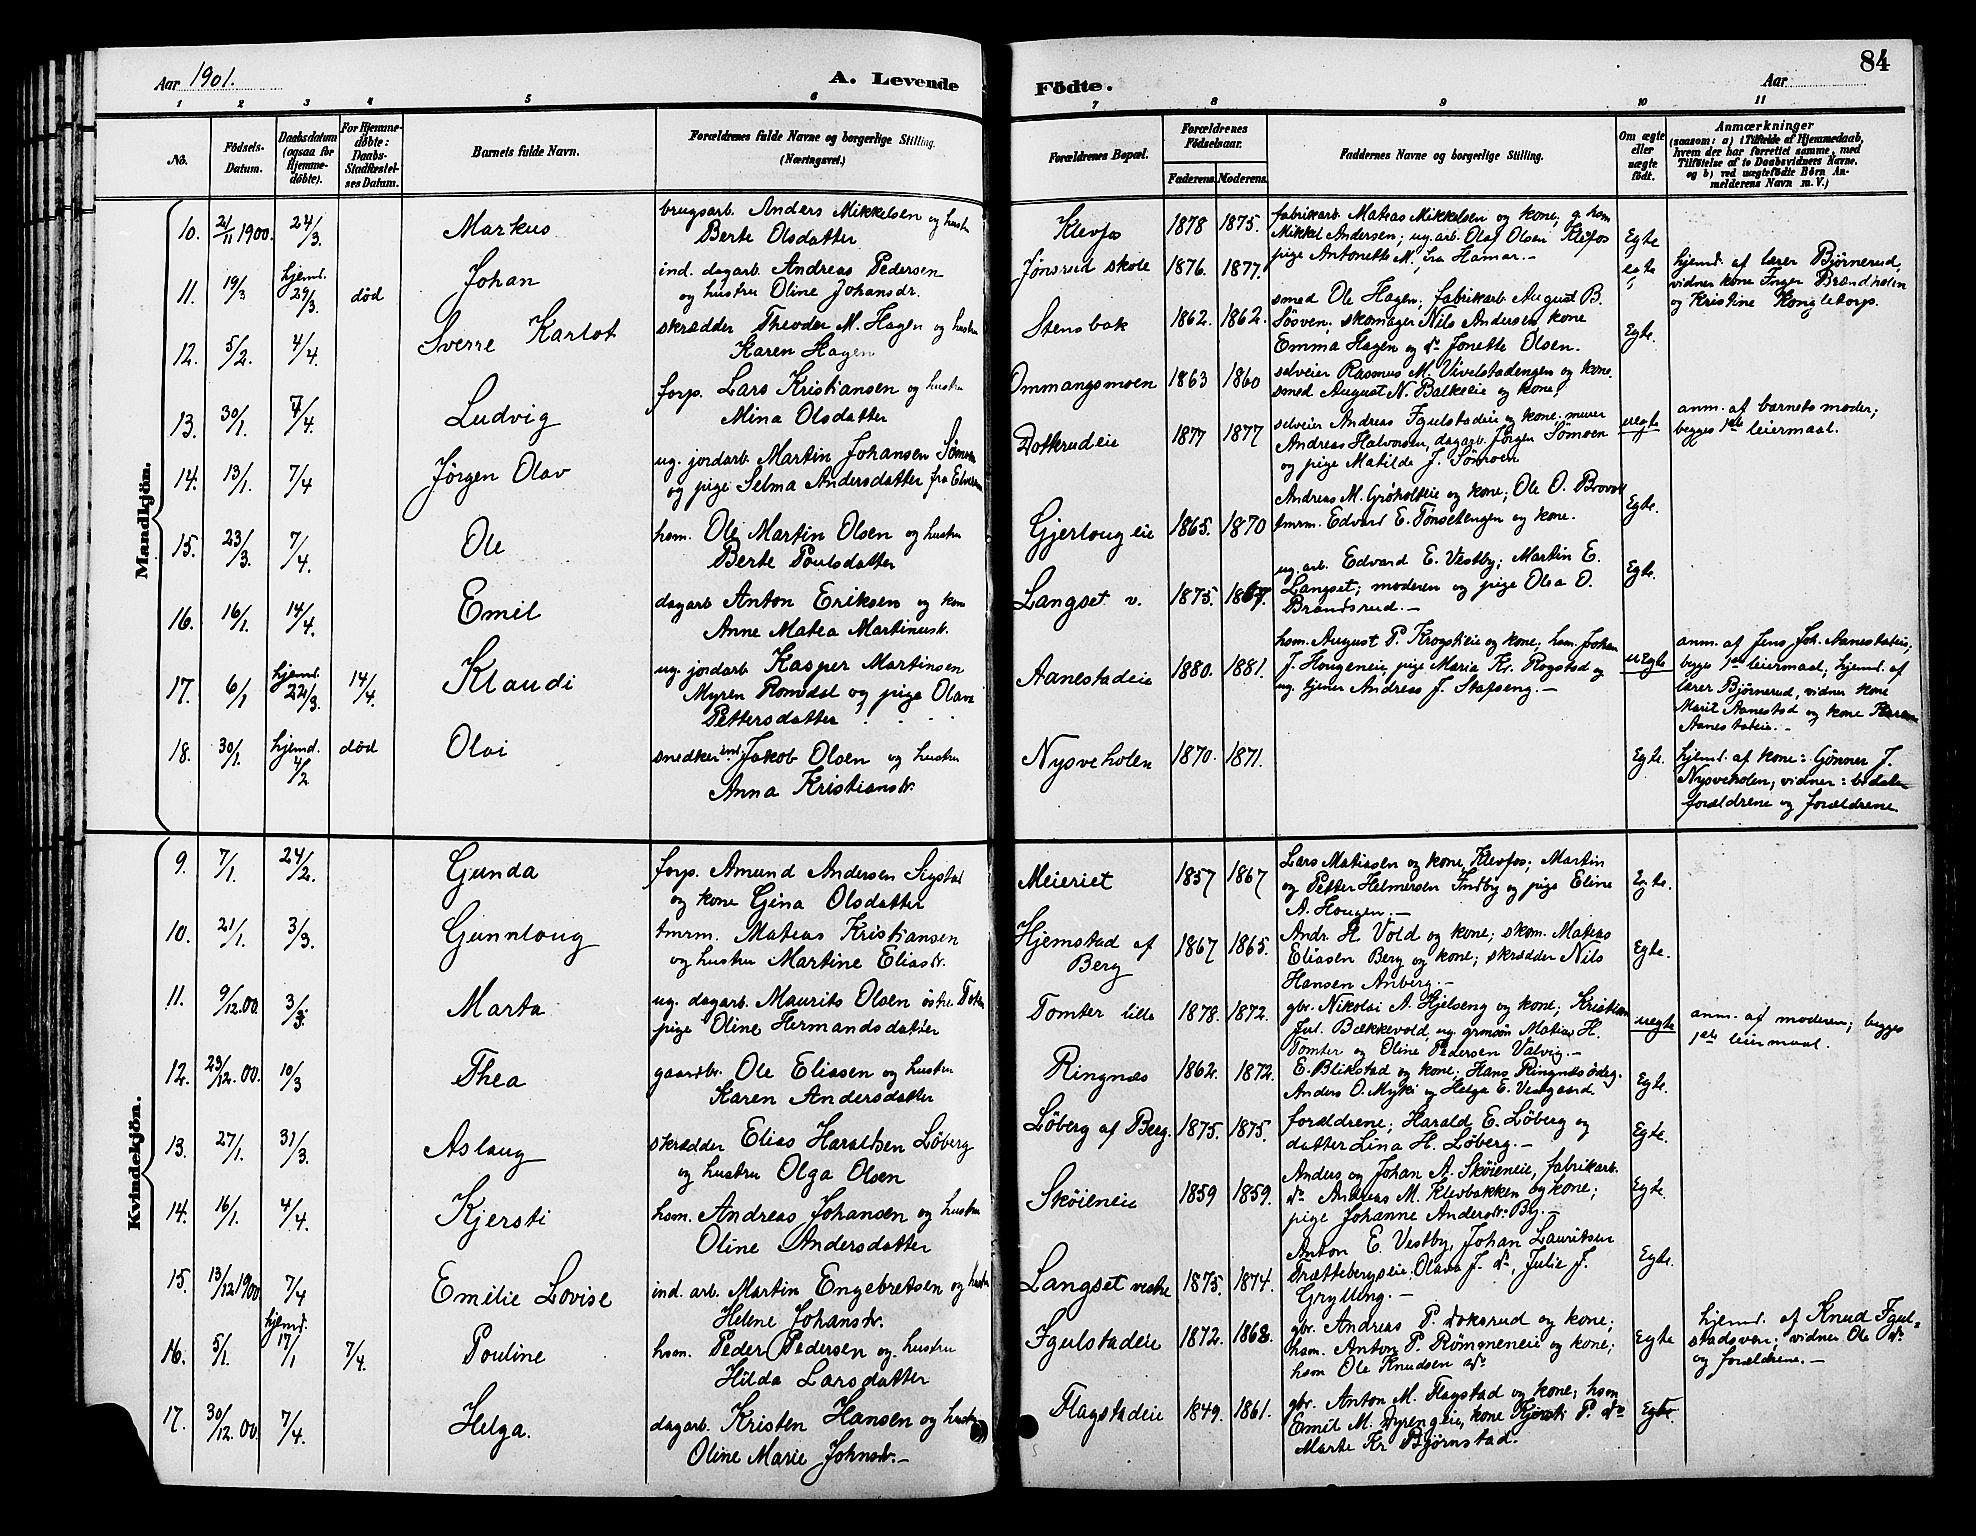 Aar 1901. A. Levende Födte. Aar 84
1 2 3 4 5 6 7 8 9 10 11
No. Födsels-Datum. Daabsdatum (ogsaa for Hjemme-døbte). For Hjemme-døbte: Daabs-Stadfæstel-ses Datum. Barnets fulde Navn. Forældrenes fulde Navne og borgerlige Stilling. (Næringsvei.) Forældrenes Bopæl. Forældrenes Födselsaar. Faderens. Moderens. Faddernes Navne og borgerlige Stilling. Om ægte eller uægte födt.
Anmærkninger
(saasom: a) i Tilfælde af Hjemmedaab,
hvem der har forrettet samme, med
Tilföielse af to Daabsvidners Navne,
og b) ved uægtefödte Börn An-
melderens Navn m. V.)
Mandkjön.
10. 21/11 1900. 24/3. Markus
brugsarb. Anders Mikkelsen og hustru
Berte Olsdatter
Klevfos 1878 1875.
fabrikarb. Mateas Mikkelsen og kone, g. hsm
Mikkel Andersen; ug. arb. Olaf Olsen Klefos
pige Antonette M., fra Hamar. –
Egte
11. 19/3 hjemd. 29/3. død Johan
ind. dagarb. Andreas Pedersen
og hustru Oline Johansdr.
Jønsrud skole 1876. 1877.
egte
hjemd. af lærer Bjørnerud,
vidner kone Inger Brændholen
og Kristine Kongletorp.
12. 5/2. 4/4. Sverre Karlot
skrædder Theodor M. Hagen og hustru
Karen Hagen
Stensbak 1862. 1862.
smed Ole Hagen; fabrikarb August B.
Søsven; skomager Nils Andersen kone
Emma Hagen og do Jonette Olsen.
Egte.
13. 30/1. 7/4. Ludvig
forp. Lars Kristiansen og hustru
Mina Olsdatter
Ommangsmoen 1863 1860
selveier Rasmus M. Vivelstadengen og kone.
smed August N. Balkeeie og kone.
14. 13/1. 7/4 Jørgen Olav
ug. jordarb. Martin Johansen Sømoen
og pige Selma Andersdatter fra Elverum
Dotkrudeie 1877 1877
selveier Andreas Fgulstadeie og kone; murer
Andreas Halvorsen, dagarb. Jørgen Sømoen
og pige Matilde J. Sømoen
uegte
anm. af barnets moder;
begges 1ste leiermaal.
15. 23/3. 7/4. Ole
hsm. Ole Martin Olsen og hustru
Berte Poulsdatter
Gjerlougeie 1865. 1870
Andreas M. Grøholteie og kone; Ole O. Brovol
tmrm. Edvard E. Tonsetengen og kone.
Egte.
16. 16/1. 14/4. Emil
dagarb Anton Eriksen og kone
Anne Matea Martinusdr.
Langset v. 1875. 1867.
ug. arb. Edvard E. Vestby; Martin E.
Langset; moderen og pige Olea O.
Brandsrud. –
Egte.
17. 6/1 hjemd. 22/3. 14/4. Klaudi
ug. jordarb Kasper Martinsen
Myren Romdal og pige Olava
Pettersdatter
Aanestadeie 1880. 1881.
hsm. August P. Krogstieie og kone; hsm. Johan
J. Hougeneie, pige Maria Kr. Rogstad og
ug. tjener Andreas J. Stafseng. –
uEgte
anm. af Jens Joh. Aanestadeie;
begges 1ste leiermaal; hjemd. af
lærer Bjørnerud, vidner kone
Marit Aanestad og kone Karen
Aanestadeie. –
18. 30/1. hjemd. 4/2 død Olai
snedker ind. Jakob Olsen og hustru
Anna Kristiansdr.
Nysveholen 1870. 1871.
Egte.
hjemd. af kone: Gønner J.
Nysveholen, vidner: bedste-
forældrene og forældrene
Kvindekjön.
9. 7/1. 24/2. Gunda
forp. Amund Andersen Sigstad
og kone Gina Olsdatter
Meieriet 1857 1867
Lars Matiasen og kone, Klevfos; Martin
og Petter Helmersen Indby og pige Eline
A. Hougen. –
Egte.
10. 21/1. 3/3. Gunnloug
tmrm. Mateas Kristiansen
og hustru Martine Eliasdr.
Hjemstad af
Berg 1867 1865.
Andr. H. Vold og kone; skom. Mateas
Eliasen Berg og kone; skrædder Nils
Hansen Anberg. –
Egte.
11. 9/12.00. 3/3. Marta
ug. dagarb. Maurits Olsen østre Toten
pige Oline Hermandsdatter
Tomter lille 1878. 1872.
gbr. Nikolai A. Hjelseng og kone; Kristian
Jul. Bækkevold, ug. grmsøn Matias H.
Tomter og Oline Pedersen Valvig. –
uegte
anm. af moderen; begges
1ste leiermaal.
12. 23/12.00. 10/3 Thea
gaardbr. Ole Eliasen og hustru
Karen Andersdatter
Ringnæs 1862. 1872.
E. Blikstad og kone; Hans Ringnæsødeg.
Anders O. Myki og Helga E. Vestgaard.
Egte.
13. 27/1. 31/3. Aslaug
skrædder Elias Haraldsen Løberg
og hustru Olga Olsen
Løberg af Berg. 1875. 1875.
forældrene; Harald E. Løberg og
datter Lina H. Løberg. –
Egte.
14. 16/1. 4/4. Kjersti
hsm. Andreas Johansen og hustru
Oline Andersdatter
Skøieneie 1859 1859.
Anders og Johan A. Skøieneie, fabrikarb.
do Andreas M. Klevbakken og kone;
pige Johanne Andersdr. By. –
Egte.
15. 13/12 1900 7/4 Emilie Lovise
ind. arb. Martin Engebretsen og hustru
Helene Johansdr.
Langset vestre 1875. 1874.
Anton E. Vestby, Johan Lauritsen
Trættebergseie; Olava J. do, Julie J.
Grylling. –
Egte.
16. 5/1. hjemd. 17/1 7/4. Pouline
hsm. Peder Pedersen og hustru
Hilda Larsdatter
Fgulstadeie 1872. 1868.
gbr. Andreas P. Doksrud og kone;
hsm. Anton P. Rømmeneie og kone;
hsm Ole Knudsen do
Egte
hjemd. af Knud Fgul-
stadsven; vidner Ole do
og forældrene. –
17. 30/12.00. 7/4. Helga.
dagarb. Kristen Hansen og hustru
Oline Marie Johnsdr. –
Flagstadeie 1849. 1861.
gbr. Anton M. Flagstad og kone; hsm
Emil M. Dyrengeie, kone Kjersti P. do
Marte Kr Bjørnstad.
Egte.